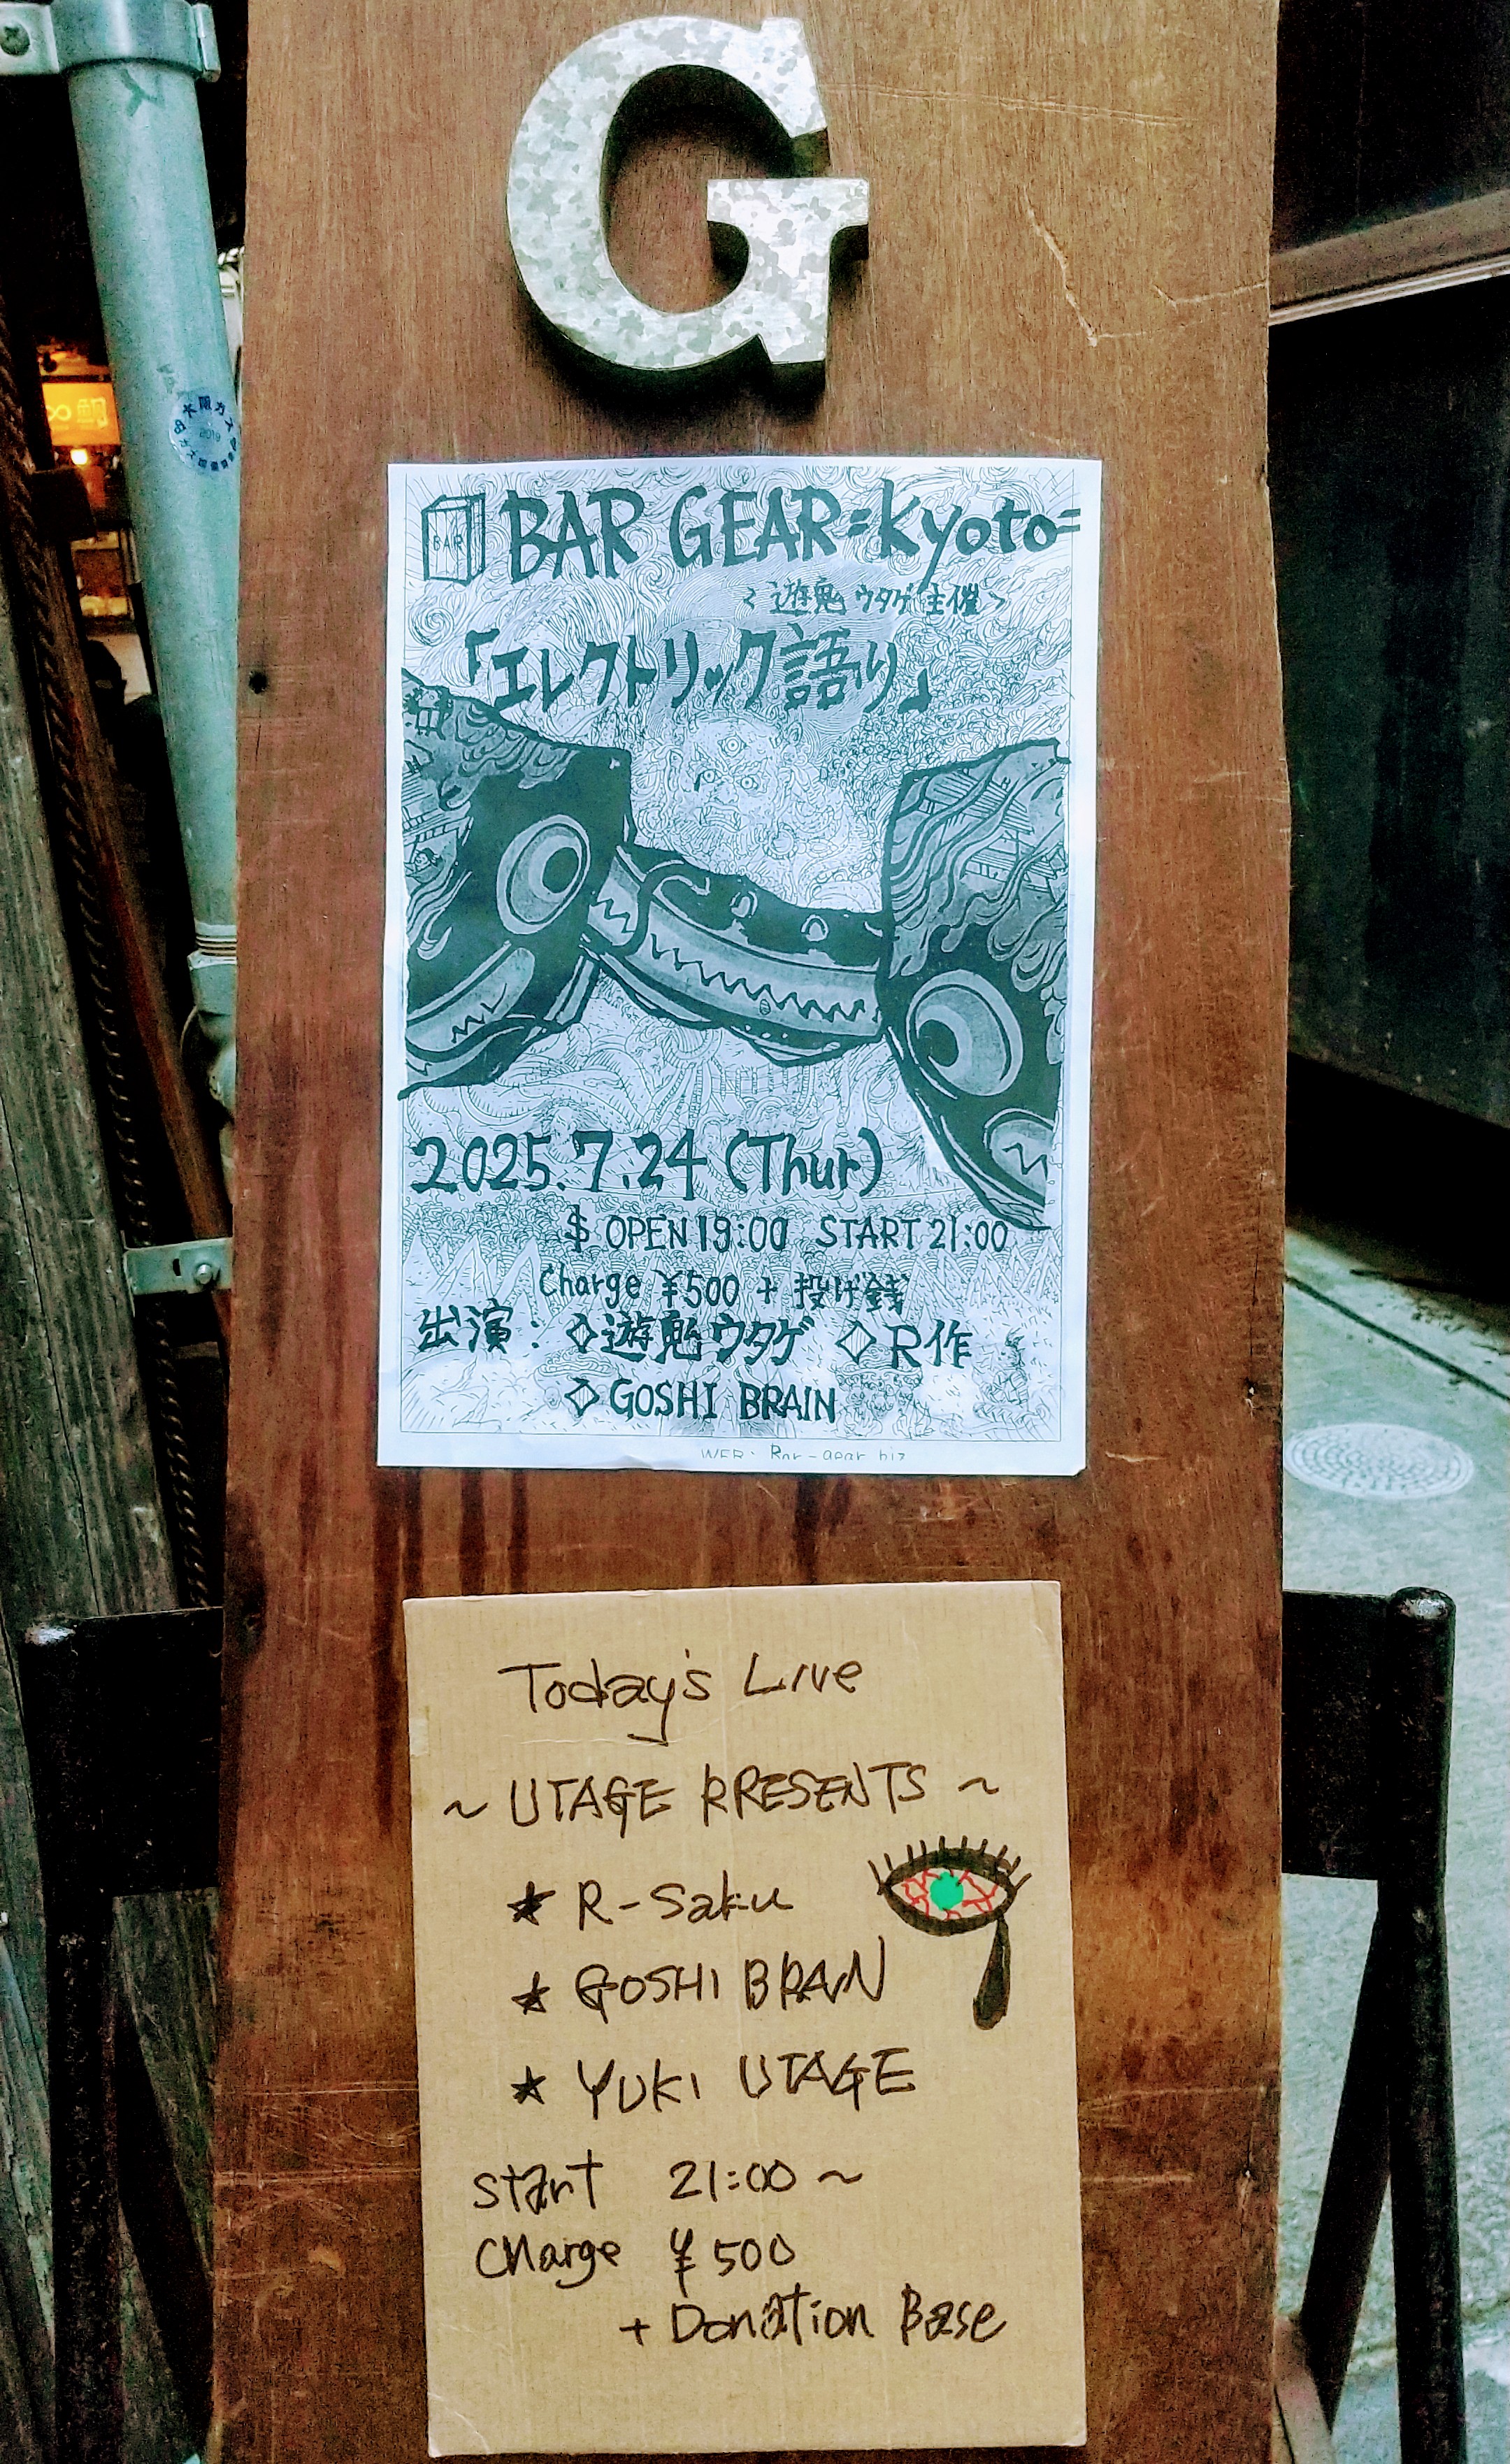 G
BAR
BAR GEAR=kyoto=
<遊鬼ウタゲ主催>
「エレクトリック語り」
2025.7.24 (Thur)
$ OPEN 19:00 START 21:00
Charge ¥500 + 投げ銭
出演: ◇遊鬼ウタゲ ◇R作
◇GOSHI BRAIN
WEB: Bar-gear.biz
Today's Live
~ UTAGE PRESENTS ~
★ R-Saku
★ GOSHI BRAIN
★ YUKI UTAGE
start 21:00 ~
Charge ¥500
+ Donation Base
2019